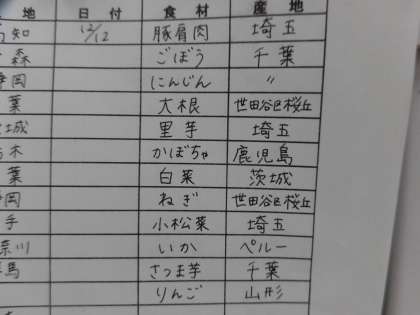 地 日付 食材 産地
知 12/12 豚肩肉 埼玉
森 ごぼう 千葉
岡 にんじん 〃
葉 大根 世田谷区桜丘
城 里芋 埼玉
木 かぼちゃ 鹿児島
葉 白菜 茨城
岡 ねぎ 世田谷区桜丘
手 小松菜 埼玉
奈川 いか ペルー
馬 さつま芋 千葉
りんご 山形